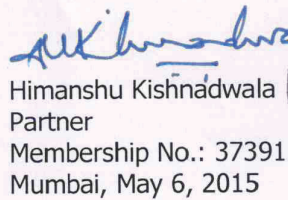 Himanshu Kishnadwala
Partner
Membership No.: 37391
Mumbai, May 6, 2015